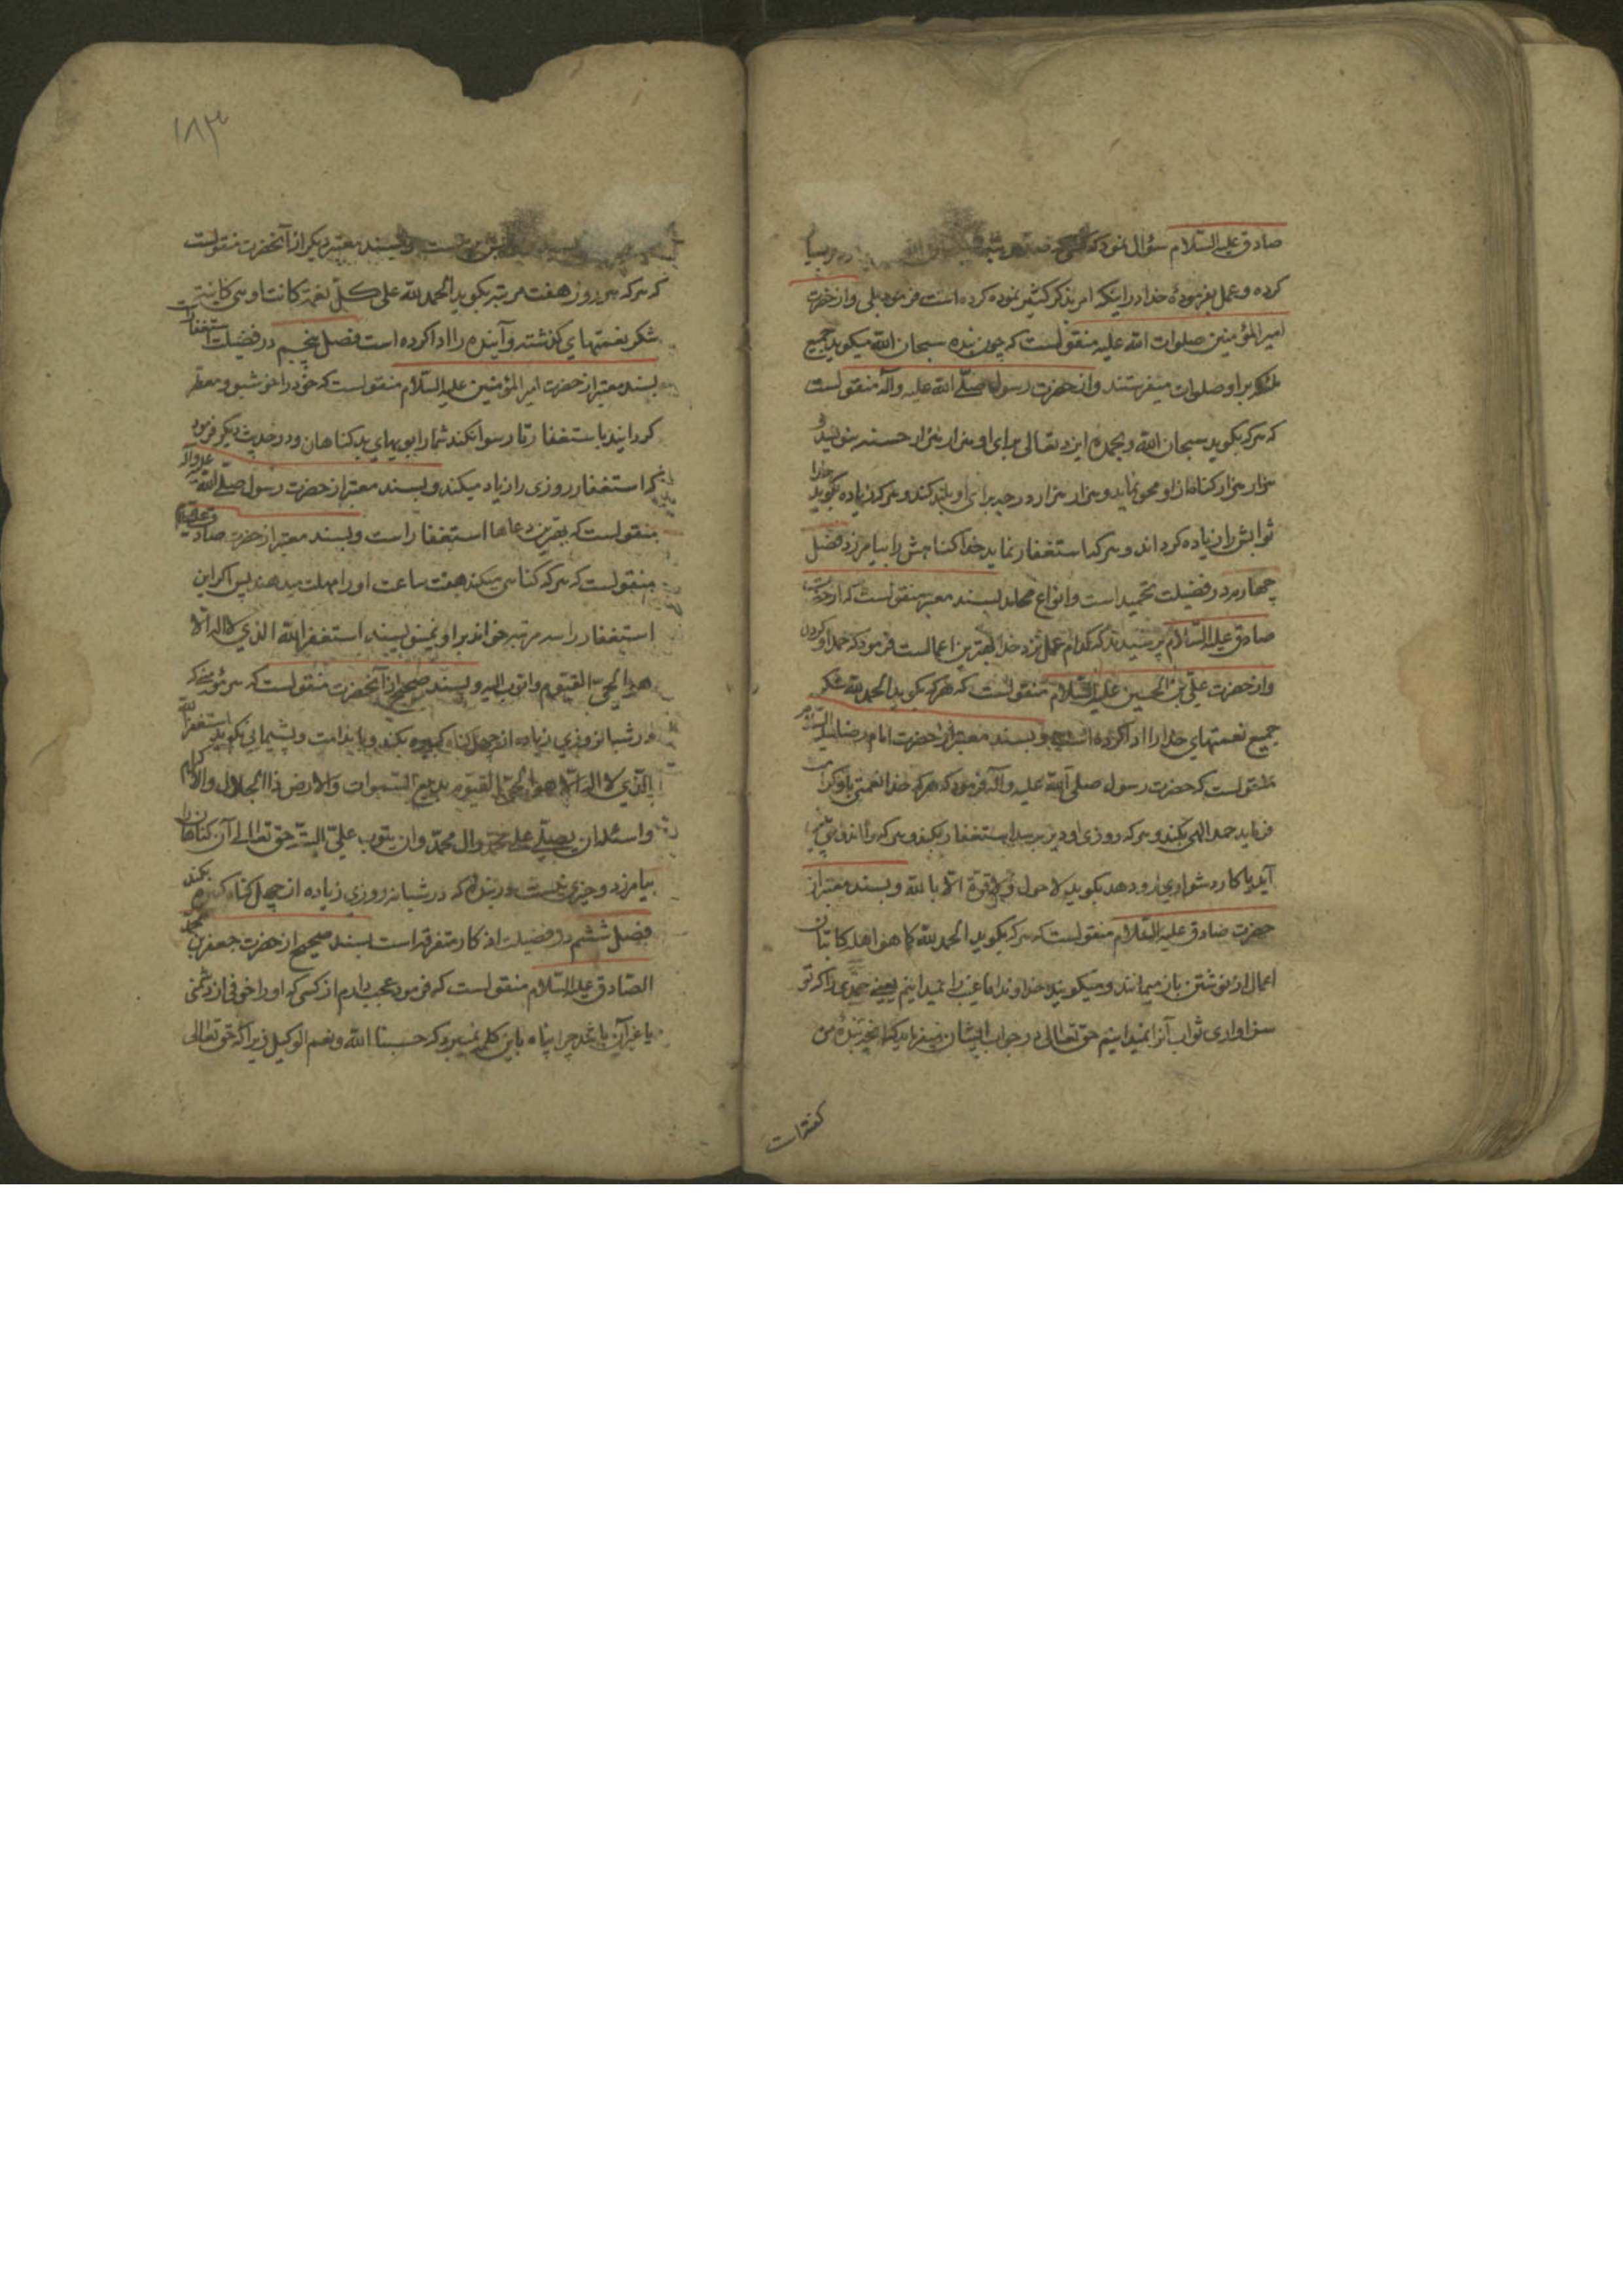 صادق علیه السّلام سؤال نمود که کسی که صد مرتبه
کرده و عمل بفرمودهٔ خدا در اینکه امر بذکر کثیر نموده کرده است فرمود بلی و از حضرت
امیر المؤمنین صلوات الله علیه منقولست که چون بنده سبحان الله میگوید جمیع
ملئکه بر او صلوات میفرستند و از حضرت رسول صلّی الله علیه وآله منقولست
که هر که بگوید سبحان الله وبحمده ایزد تعالی برای او هزار هزار حسنه بنویسد و
هزار هزار گناه از او محو نماید و هزار هزار درجه برای او بلند کند و هر که زیاده بگوید خدا
ثوابش را زیاده گرداند و هر که استغفار نماید خدا گناهش را بیامرزد فصل
چهارم در فضیلت تحمید است و انواع محامد بسند معتبر منقولست که از حضرت
صادق علیه السّلام پرسیدند که کدام عمل نزد خدا بهترین اعمالست فرمود که حمد او کردن
و از حضرت علیّ بن الحسین علیه السّلام منقولست که هر که بگوید الحمد لله شکر
جمیع نعمتهای خدا را ادا کرده است و بسند معتبر از حضرت امام رضا علیه السّلام
منقولست که حضرت رسول صلی الله علیه وآله فرمود که هر که خدا نعمتی باو کرامت
فرماید حمد الهی بکند و هر که روزی او دیر برسد استغفار بکند و هر که را اندوهی پیش
آید یا کار دشواری رو دهد بگوید لا حول ولا قوّة الّا بالله و بسند معتبر از
حضرت صادق علیه السّلام منقولست که هر که بگوید الحمد لله کما هو اهله کاتبان
اعمال از نوشتن باز میمانند و میگویند خداوندا ما غیب را نمیدانیم یعنی حمدی را که تو
سزاواری ثواب آنرا نمیدانیم حق تعالی در جواب ایشان میفرماید که آنچه بندهٔ من
کفته است
۱۸۳
بنویسید و ثوابش بر منست و بسند معتبر دیگر از آنحضرت منقولست
که هر که هر روز هفت مرتبه بگوید الحمد لله علی کلّ نعمة کانت او هی کاینة
شکر نعمتهای گذشته و آینده را ادا کرده است فصل پنجم در فضیلت استغفار است
بسند معتبر از حضرت امیر المؤمنین علیه السّلام منقولست که خود را خوشبو و معطر
گردانید باستغفار تا رسوا نکند شما را بویهای بد گناهان و در حدیث دیگر فرمود
که استغفار روزی را زیاد میکند و بسند معتبر از حضرت رسول صلّی الله علیه وآله
منقولست که بهترین دعاها استغفار است و بسند معتبر از حضرت صادق
منقولست که هر که گناهی میکند هفت ساعت او را مهلت میدهند پس اگر این
استغفار را سه مرتبه خواند بر او نمینویسند استغفر الله الذی لا اله الّا
هو الحیّ القیّوم و اتوب الیه و بسند صحیح از آنحضرت منقولست که هر مؤمنی که
در شبانه روزی زیاده از چهل گناه کبیره بکند و با ندامت و پشیمانی بگوید استغفر الله
الّذی لا اله الّا هو الحیّ القیّوم بدیع السّموات والارض ذا الجلال والاکرام
و اسئله ان یصلّی علی محمّد وال محمّد وان یتوب علیّ البتّه حق تعالی آن گناهان را
بیامرزد و خیری نیست در بنده که در شبانه روزی زیاده از چهل گناه کبیره بکند
فصل ششم در فضیلت اذکار متفرقه است بسند صحیح از حضرت جعفر بن محمد
الصّادق علیه السّلام منقولست که فرمود عجب دارم از کسی که او را خوفی از دشمنی
یا غیر آن باشد چرا پناه باین کلمه نمیبرد که حسبنا الله ونعم الوکیل زیرا که حق تعالی